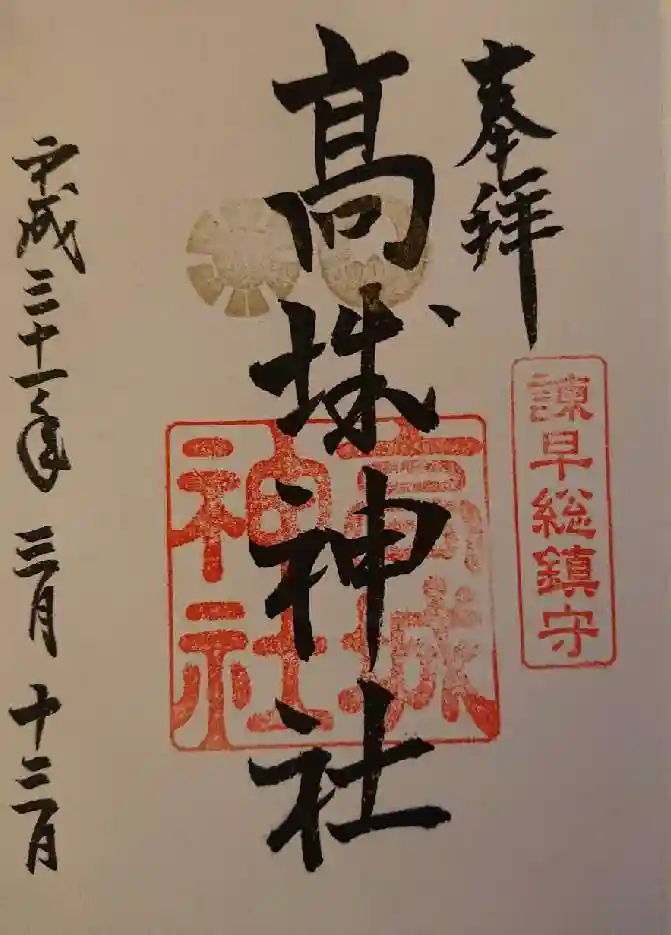 奉拝
諫早総鎮守
髙城神社
高城神社
平成三十一年三月十三月